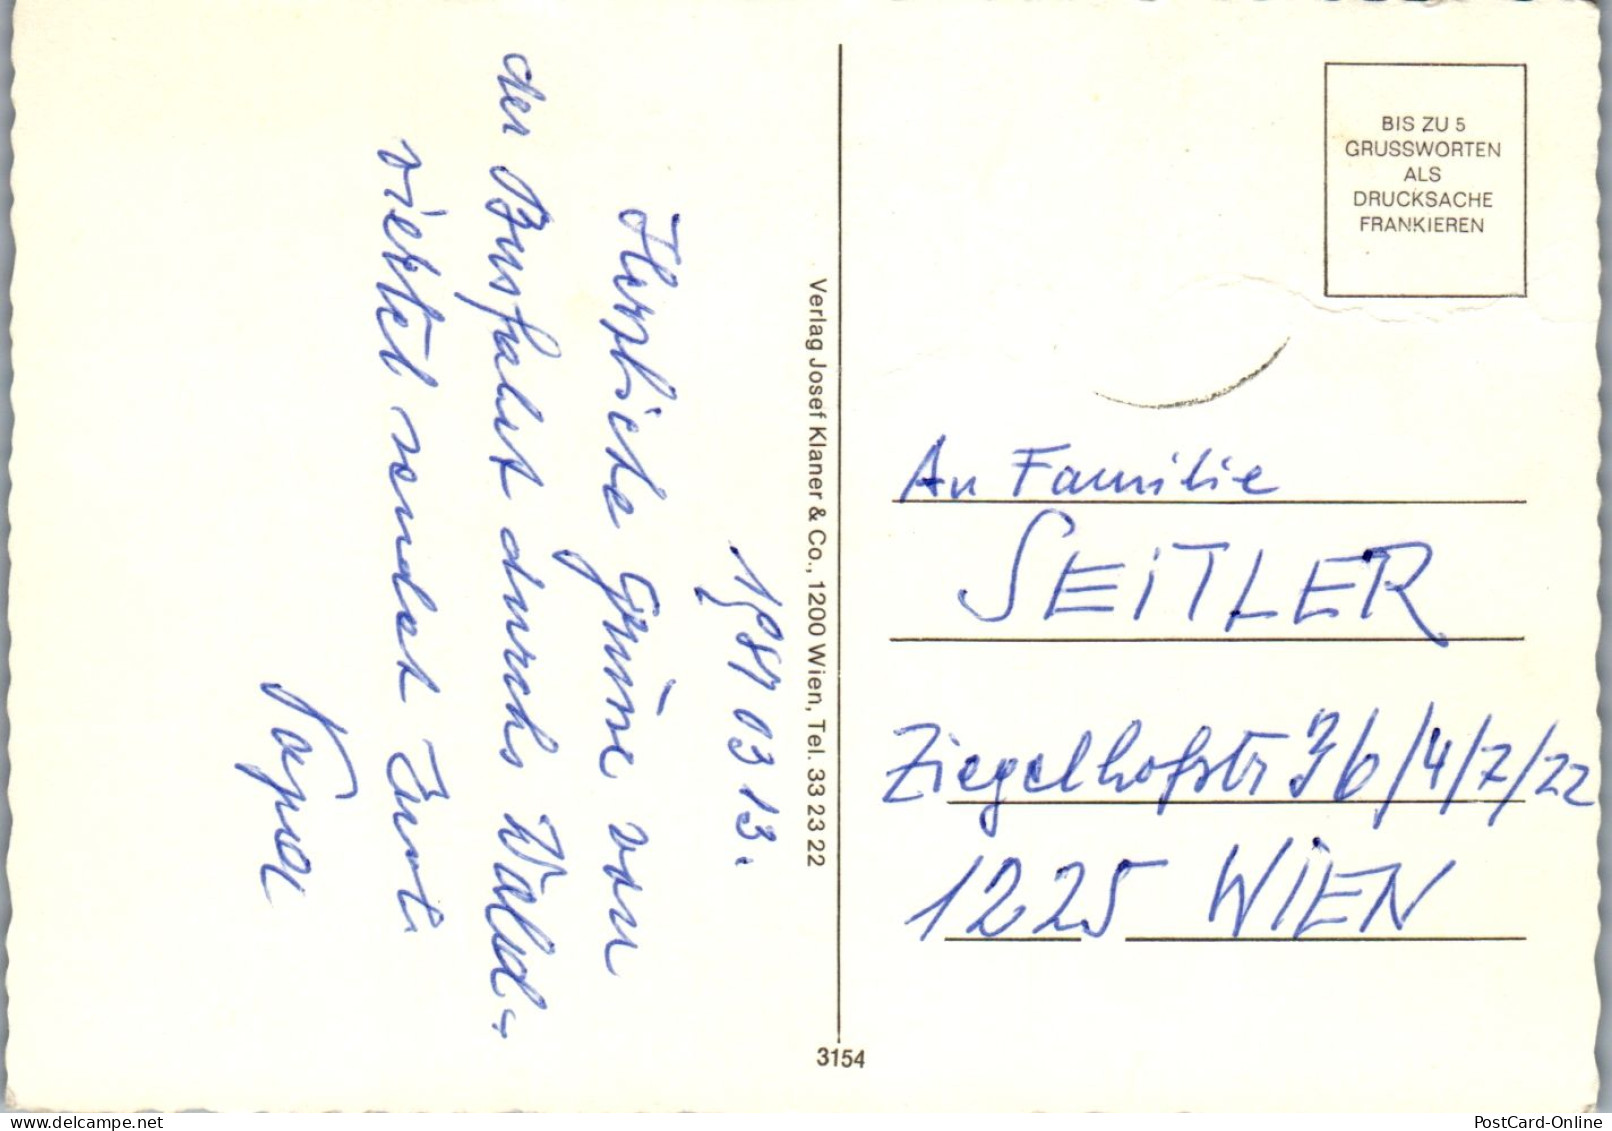 1981 03 13.
Herzliche Grüße von
der Busfahrt durchs Wald-
viertel sendet Euer
Papa
Verlag Josef Klaner & Co., 1200 Wien, Tel. 33 23 22
3154
BIS ZU 5
GRUSSWORTEN
ALS
DRUCKSACHE
FRANKIEREN
An Familie
SEITLER
Ziegelhofstr 36/4/7/22
1225 WIEN
PostCard-Online